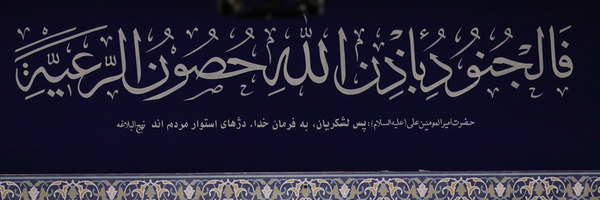 فَالْجُنُودُ بِإِذْنِ اللّٰهِ حُصُونُ الرَّعِيَّةِ
حضرت امیرالمومنین علی (علیه السلام): پس لشکریان، به فرمان خدا، دژهای استوار مردم اند نهج البلاغه